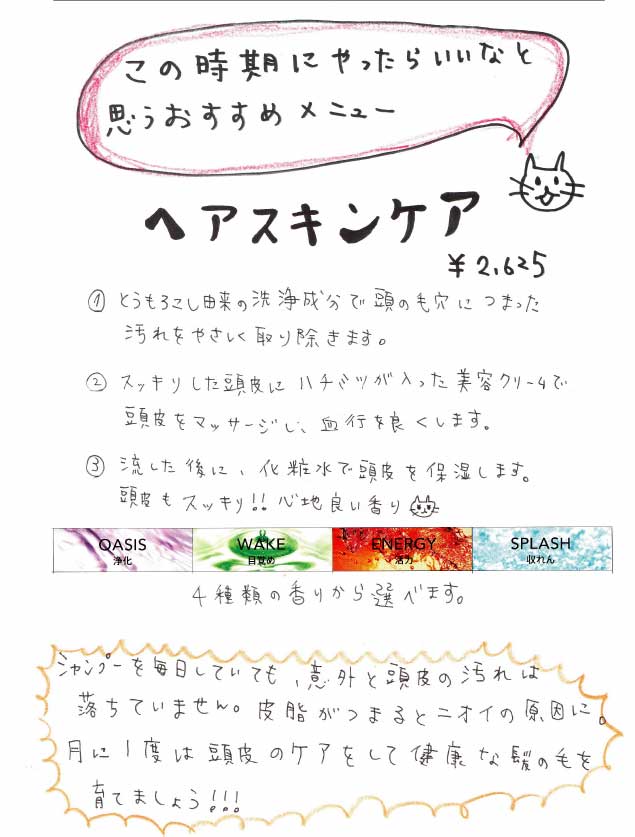 この時期にやったらいいなと
思うおすすめメニュー
ヘアスキンケア
¥2,625
① とうもろこし由来の洗浄成分で頭の毛穴につまった
汚れをやさしく取り除きます。
② スッキリした頭皮にハチミツが入った美容クリームで
頭皮をマッサージし、血行を良くします。
③ 流した後に、化粧水で頭皮を保湿します。
頭皮もスッキリ!!心地良い香り
OASIS WAKE ENERGY SPLASH
浄化 目覚め 活力 収れん
4種類の香りから選べます。
シャンプーを毎日していても、意外と頭皮の汚れは
落ちていません。皮脂がつまるとニオイの原因に。
月に1度は頭皮のケアをして健康な髪の毛を
育てましょう!!!